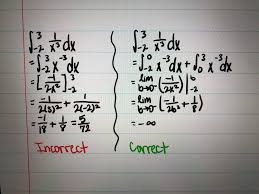 ∫₋₂³ 1/x³ dx
= ∫₋₂³ x⁻³ dx
= [-1/2x²]₋₂³
= -1/2(3)² + 1/2(-2)²
= -1/18 + 1/8 = 5/72
Incorrect
∫₋₂³ 1/x³ dx
= ∫₋₂⁰ x⁻³ dx + ∫₀³ x⁻³ dx
= lim b→0⁻ (-1/2x²)|₋₂ᵇ
= lim b→0⁻ (-1/2b² + 1/8)
= -∞
Correct